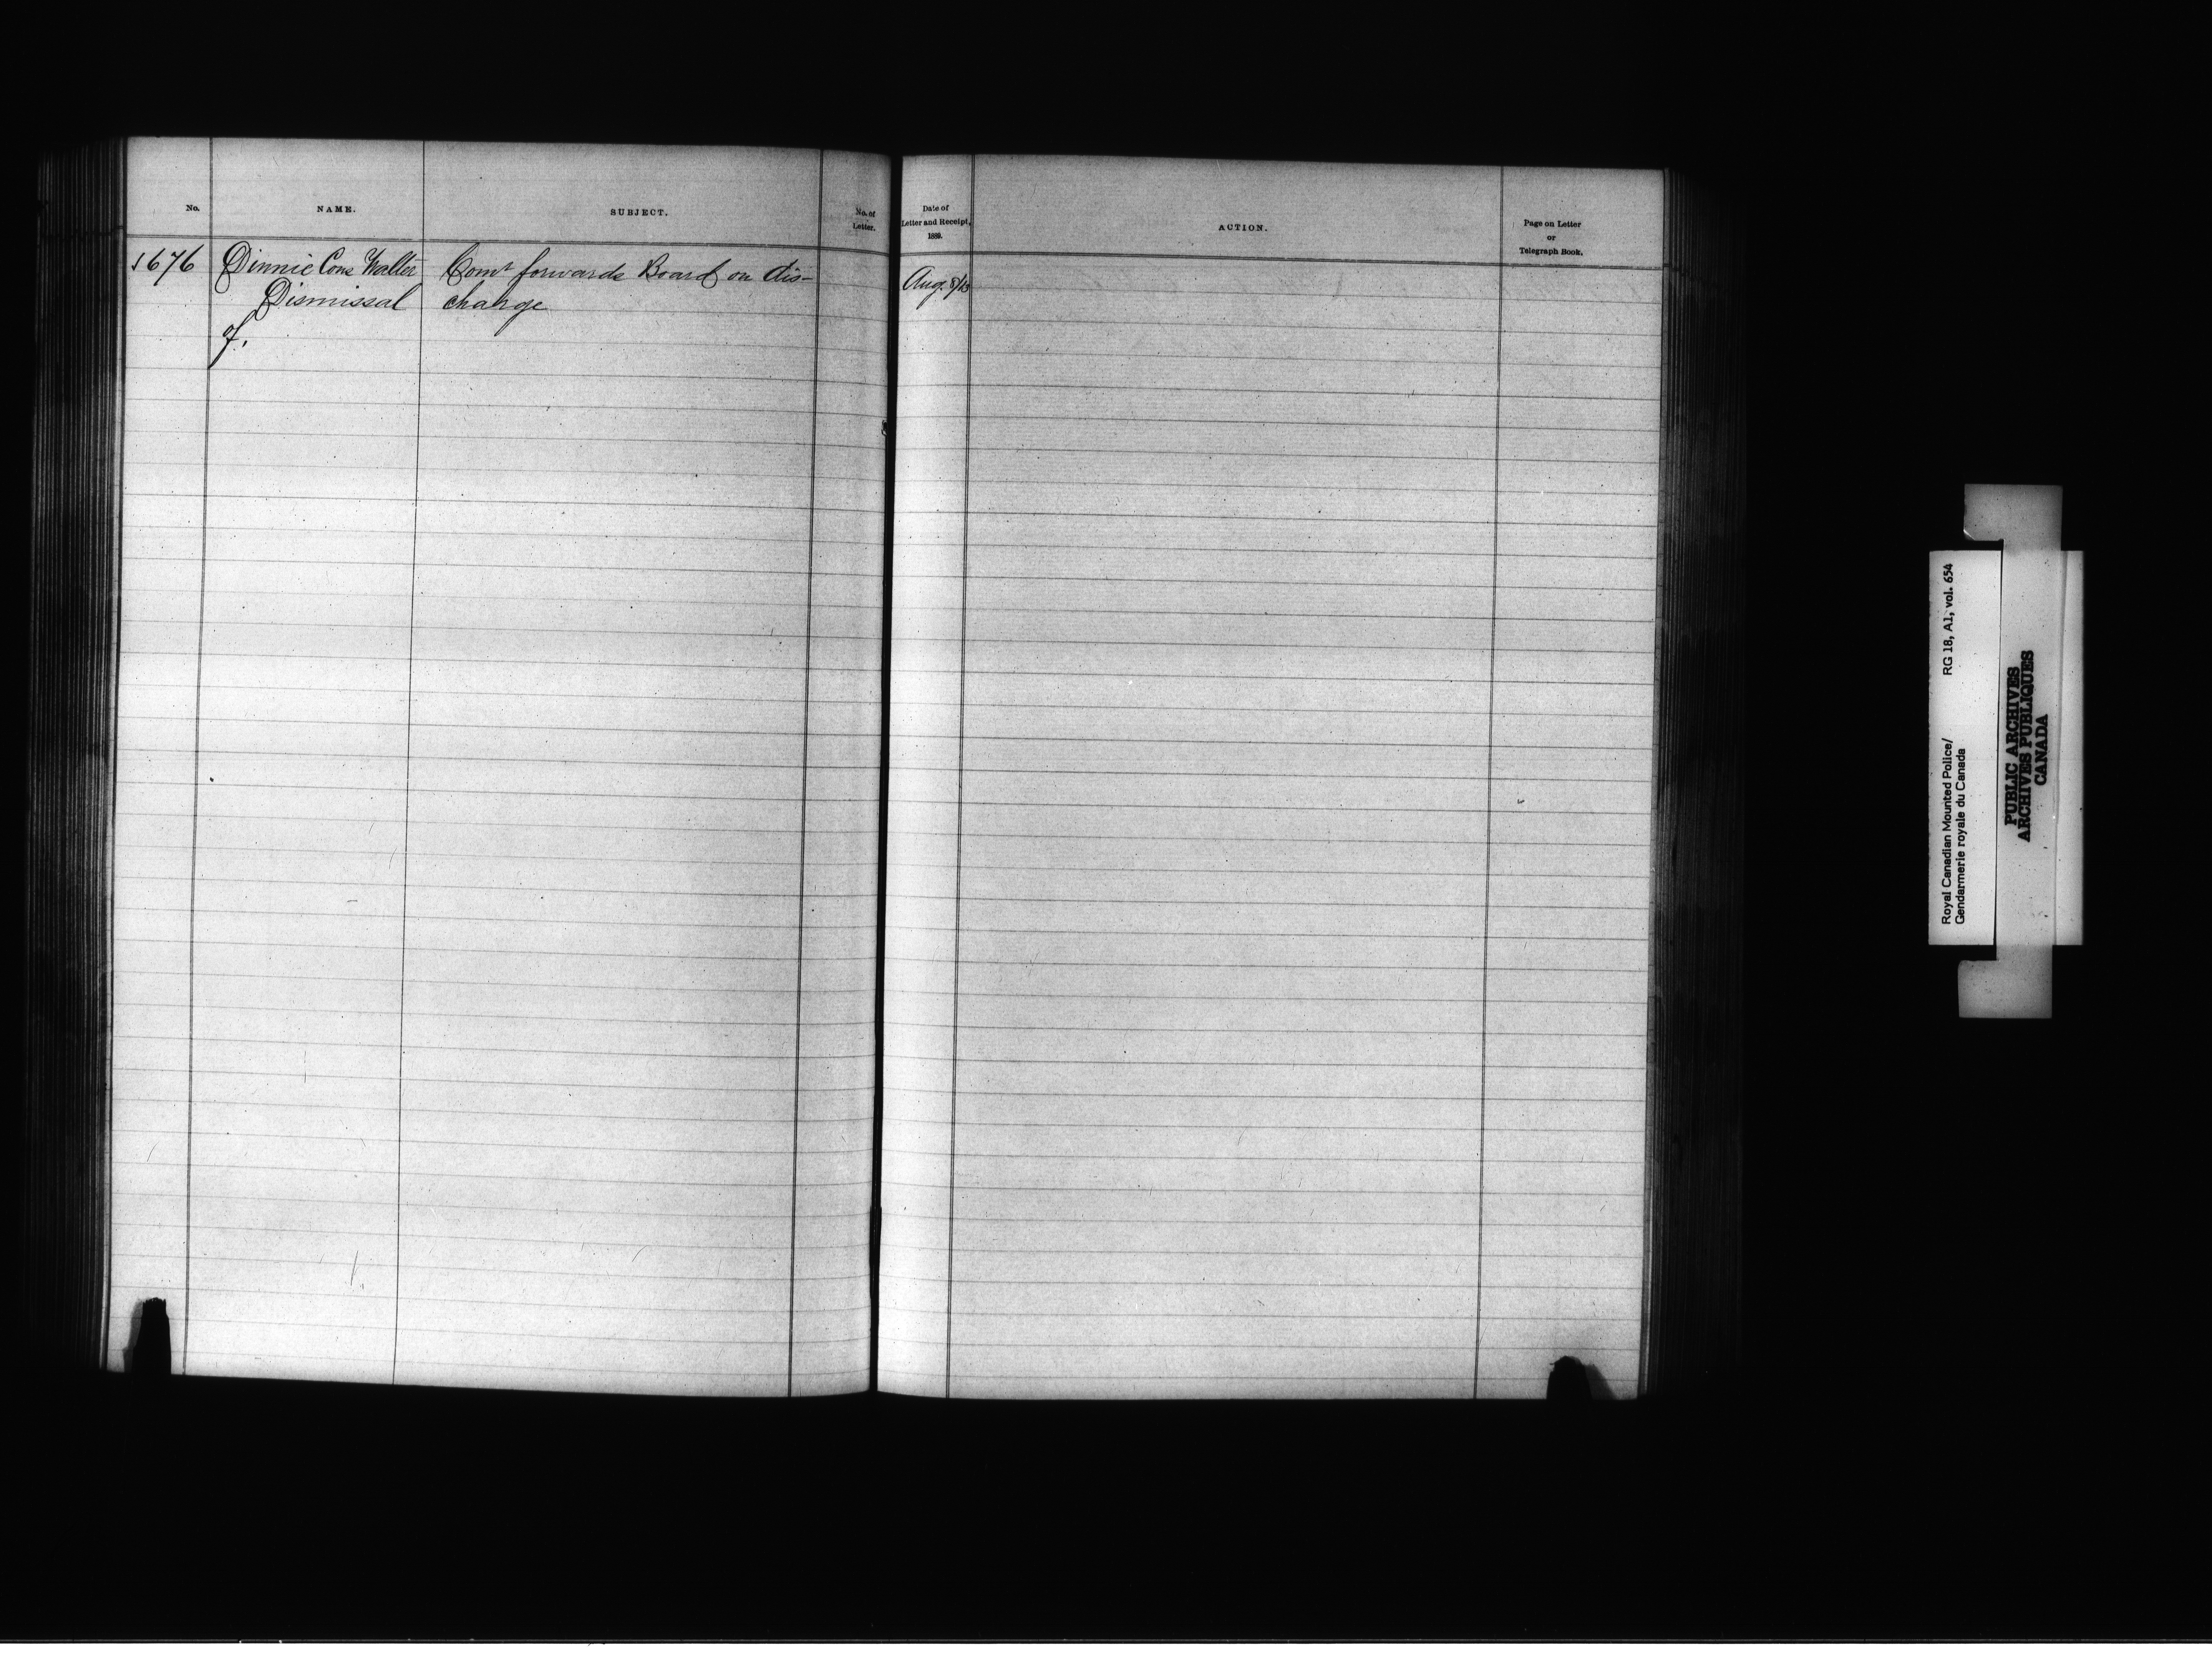 No.
NAME.
SUBJECT.
No. of
Letter.
Date of
Letter and Receipt,
1889.
ACTION.
Page on Letter
or
Telegraph Book.
1676
Dinnie Cons Walter
Dismissal
of.
Comr forwards Board on dis-
charge
Aug. 8/13
Royal Canadian Mounted Police/
Gendarmerie royale du Canada
RG 18, A1, vol. 654
PUBLIC ARCHIVES
ARCHIVES PUBLIQUES
CANADA